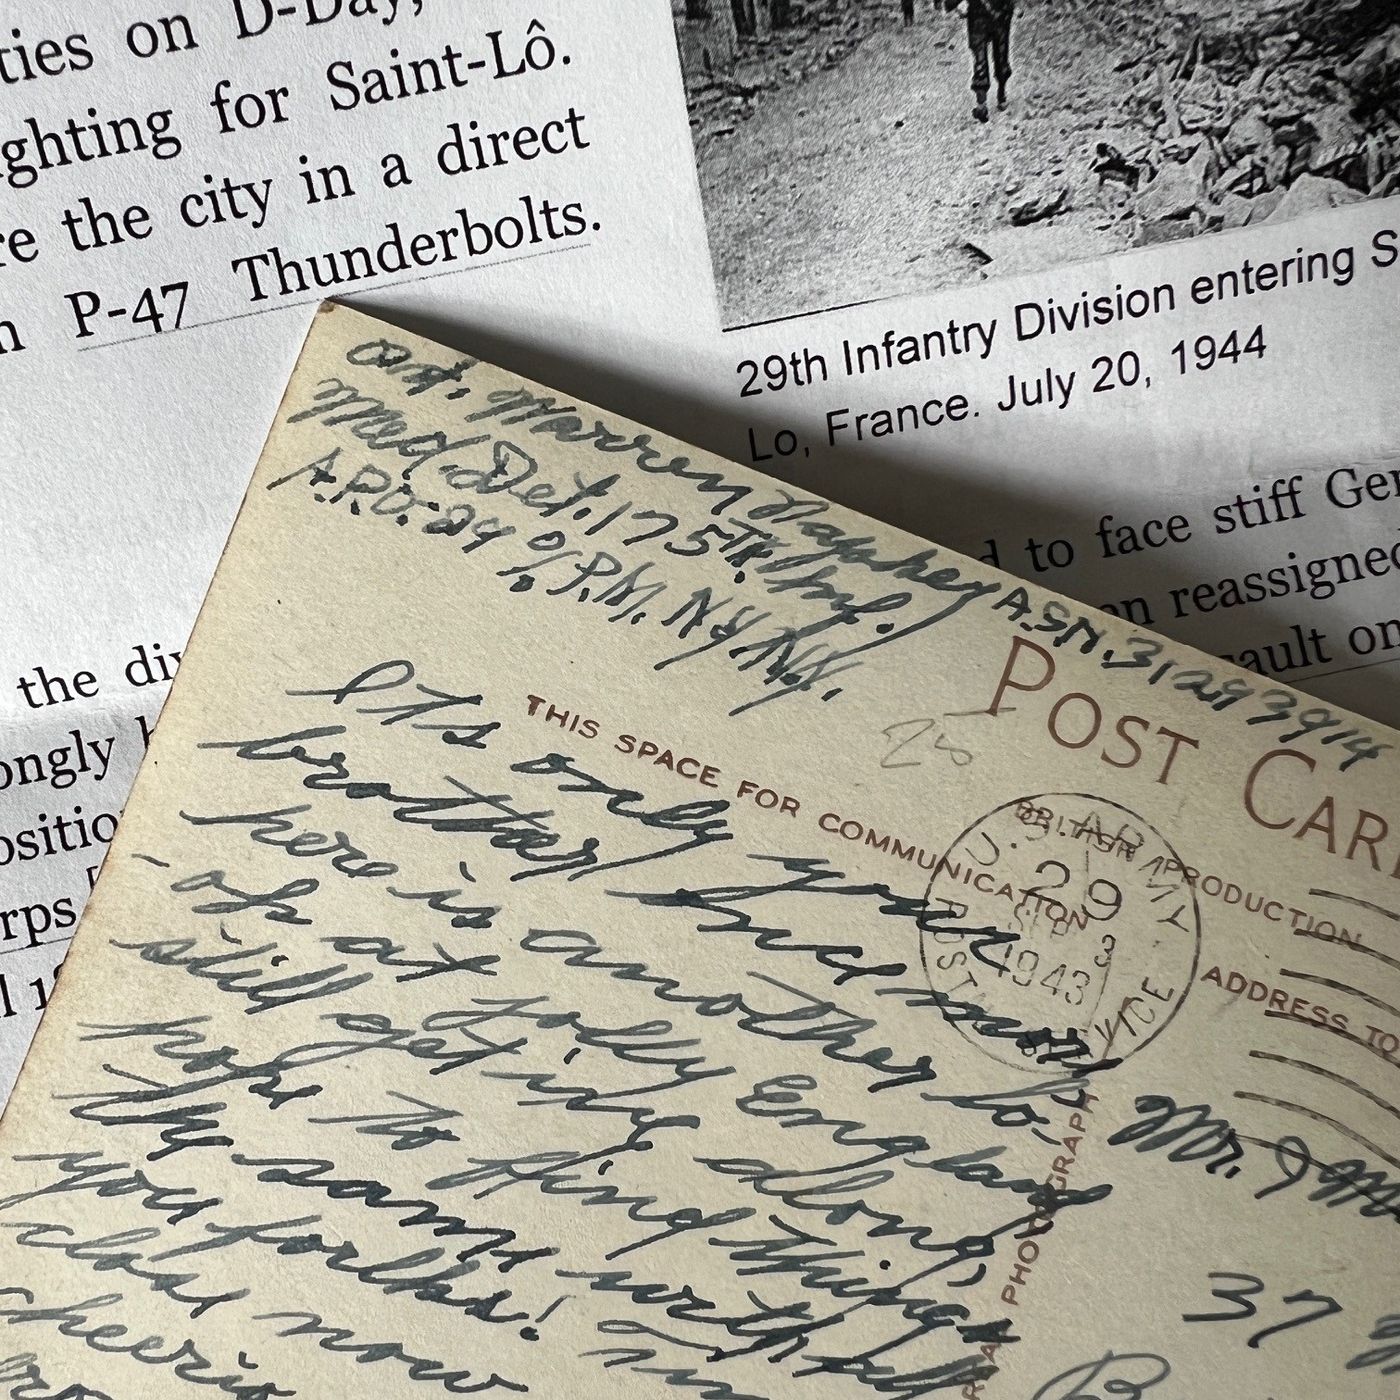 ties on D-Day,
ghting for Saint-Lô.
re the city in a direct
n P-47 Thunderbolts.
29th Infantry Division entering S
Lo, France. July 20, 1944
d to face stiff Ger
en reassigned
sault on
the div
ongly b
ositio
orps [
l 1
Warren A.S.N. 31293914
Med. Det. 175TH Inf.
A.P.O. 29 % P.M. N.Y. N.Y.
POST CAR
28
THIS SPACE FOR COMMUNICATION
BRITISH PRODUCTION
ADDRESS TO
U.S. ARMY
29
SEP 3
1943
POSTAL SERVICE
PHOTOGRAPH
Its only your
brother and more
here is another to,
of jolly England
still get ing along,
hope to find things
the same with all
you folks!
close now
cheerio
Mr. & M
37